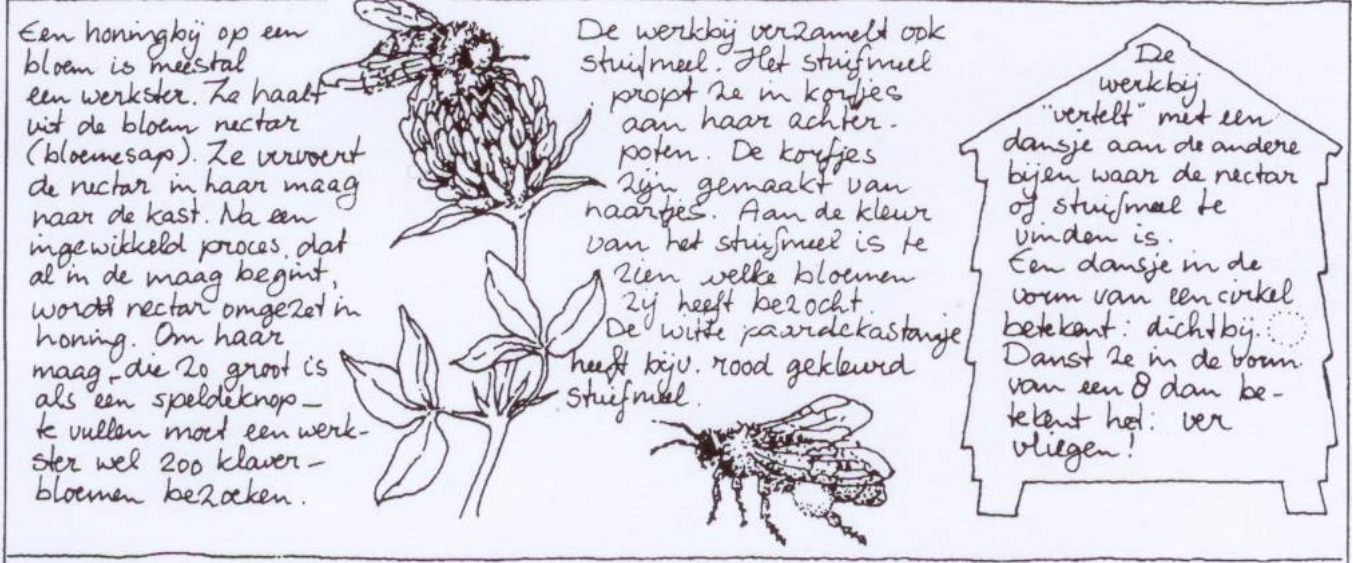 Een honingbij op een
bloem is meestal
een werkster. Ze haalt
uit de bloem nectar
(bloemesap). Ze vervoert
de nectar in haar maag
naar de kast. Na een
ingewikkeld proces, dat
al in de maag begint,
wordt nectar omgezet in
honing. Om haar
maag - die zo groot is
als een speldeknop -
te vullen moet een werk-
ster wel 200 klaver-
bloemen bezoeken.
De werkbij verzamelt ook
stuifmeel. Het stuifmeel
propt ze in korfjes
aan haar achter-
poten. De korfjes
zijn gemaakt van
haartjes. Aan de kleur
van het stuifmeel is te
zien welke bloemen
zij heeft bezocht.
De witte paardekastanje
heeft bijv. rood gekleurd
stuifmeel.
De
werkbij
"vertelt" met een
dansje aan de andere
bijen waar de nectar
of stuifmeel te
vinden is.
Een dansje in de
vorm van een cirkel
betekent: dichtbij.
Danst ze in de vorm
van een 8 dan be-
tekent het: ver
vliegen!